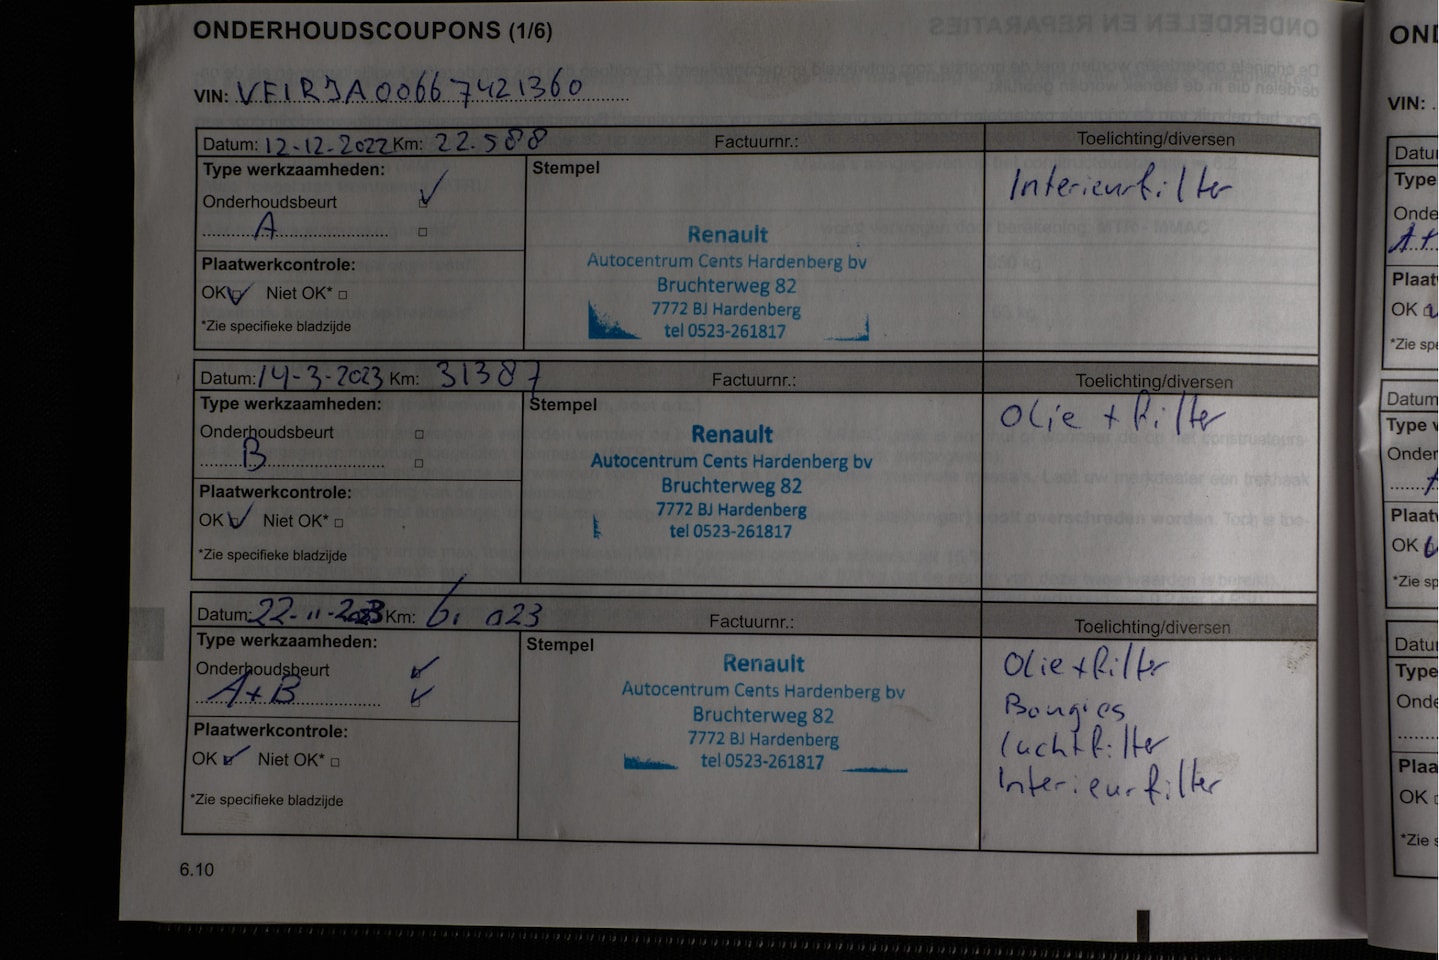 ONDERHOUDSCOUPONS (1/6)
VIN: VF1RJA00667421360
Datum: 12-12-2022 Km: 22.588 Factuurnr.: Toelichting/diversen
Type werkzaamheden: Stempel Interieurfilter
Onderhoudsbeurt
A
Plaatwerkcontrole:
OK Niet OK*
*Zie specifieke bladzijde
Renault
Autocentrum Cents Hardenberg bv
Bruchterweg 82
7772 BJ Hardenberg
tel 0523-261817
Datum: 14-3-2023 Km: 31387 Factuurnr.: Toelichting/diversen
Type werkzaamheden: Stempel Olie + filter
Onderhoudsbeurt
B
Plaatwerkcontrole:
OK Niet OK*
*Zie specifieke bladzijde
Renault
Autocentrum Cents Hardenberg bv
Bruchterweg 82
7772 BJ Hardenberg
tel 0523-261817
Datum: 22-11-2023 Km: Factuurnr.: Toelichting/diversen
Type werkzaamheden: Stempel
Onderhoudsbeurt
A+B
Plaatwerkcontrole:
OK Niet OK*
*Zie specifieke bladzijde
Renault
Autocentrum Cents Hardenberg bv
Bruchterweg 82
7772 BJ Hardenberg
tel 0523-261817
Olie + filter
Bougies
luchtfilter
Interieurfilter
6.10
OND
VIN:
Datu
Type
Onde
A+
Plaat
OK
*Zie spe
Datum
Type v
Onder
Plaatv
OK
*Zie sp
Datu
Type
Onde
Plaa
OK
*Zie s